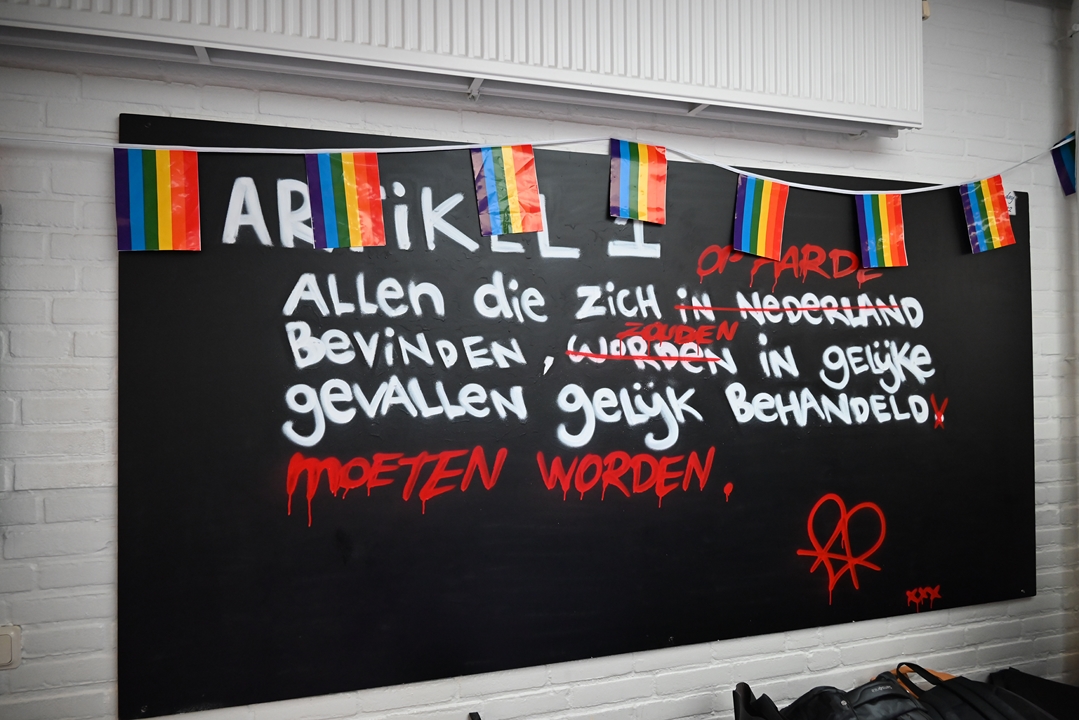 ARTiKEL 1
OP AARDE
ALLEn die ZiCH iN NEDERLAND
ZOUDEN
BeViNDEN, WORDEN iN gELijKe
geVALLEN gELijK BeHANDELD.
MOETEN WORDEN.
xxx